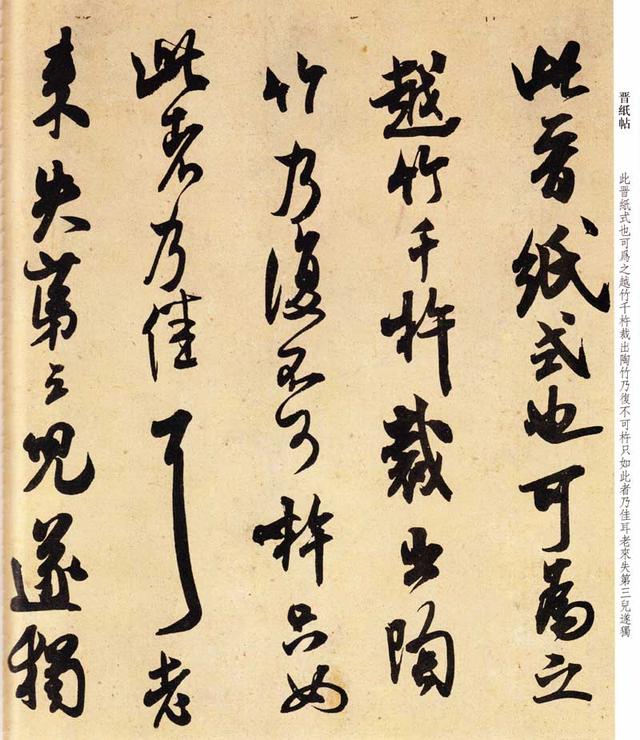 晋紙帖
此晋紙式也可爲之越竹千杵裁出陶竹乃復不可杵只如此者乃佳耳老來失第三兒遂獨
此晋紙式也可爲之
越竹千杵裁出陶
竹乃復不可杵只如
此者乃佳耳老
来失第三児遂獨